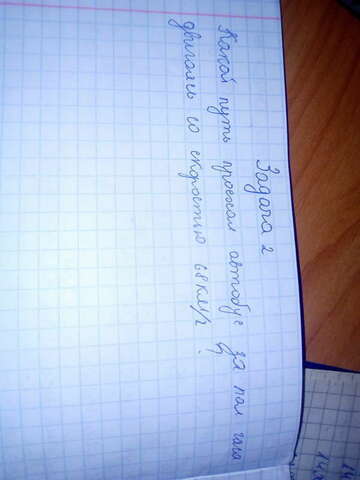 Задача 2
Какой путь проехал автобус за пол часа
двигаясь со скоростью 68 км/ч ?
14
14